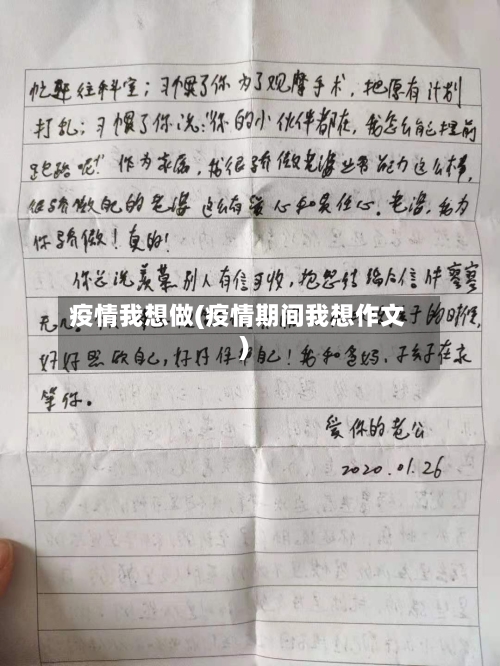 忙赶往科室；习惯了你为了观摩手术，把原有计划
打乱；习惯了你说："你的小伙伴都在，我怎么自己提前
跑路呢！"作为家属，我很骄傲老婆业务能力这么棒，
很骄傲自己的老婆这么有爱心和责任心。老婆，我为
你骄傲！真的！
你总说羡慕别人有信可收，抱怨结婚后信件寥寥
无几。
疫情我想做(疫情期间我想作文
)
子的时候，
好好照顾自己，好好保护自己！我和爸妈、孩子在家
等你。
爱你的老公
2020.01.26